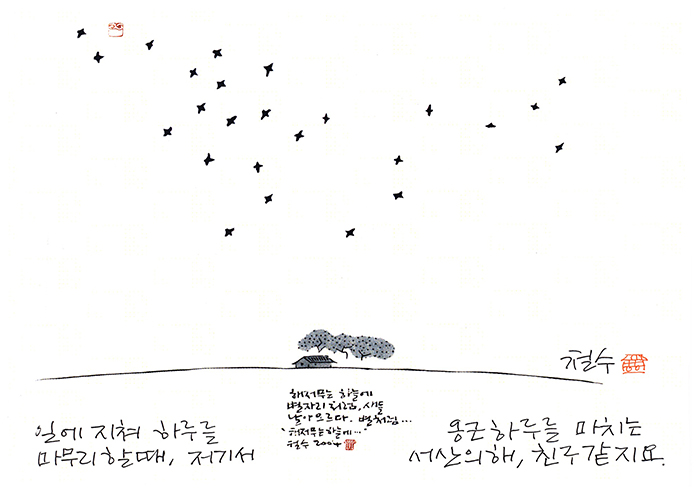 철수
해저무는 하늘에
별자리처럼, 새들
날아오르다. 별처럼...
"해저무는 하늘에..."
철수 2004
일에 지쳐 하루를
마무리 할 때, 저기서
둥근 하루를 마치는
서산의 해, 친구 같지요.